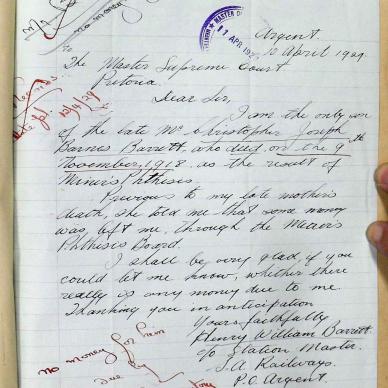 no money
MASTER
11 APR 19
Argent.
10 April 1929.
To
The Master Supreme Court
Pretoria.
Dear Sir,
I am the only son
of the late Mr Christopher Joseph
Barnes Barrett who died on the 9th
November, 1918. as the result of
Miner's Phthisis.
Previous to my late mother's
death, she told me that some money
was left me, through the Miner's
Phthisis Board.
I shall be very glad if you
could let me know, whether there
really is any money due to me.
Thanking you in anticipation
Yours faithfully
Henry William Barrett
c/o Station Master.
S.A. Railways.
P.O. Argent.
12/4/29
No money for him
due